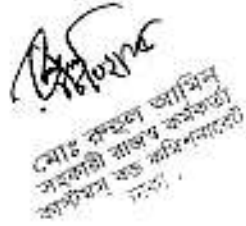 মোঃ রুহুল আমিন
সহকারী রাজস্ব কর্মকর্তা
কাস্টমস বন্ড কমিশনারেট
ঢাকা।